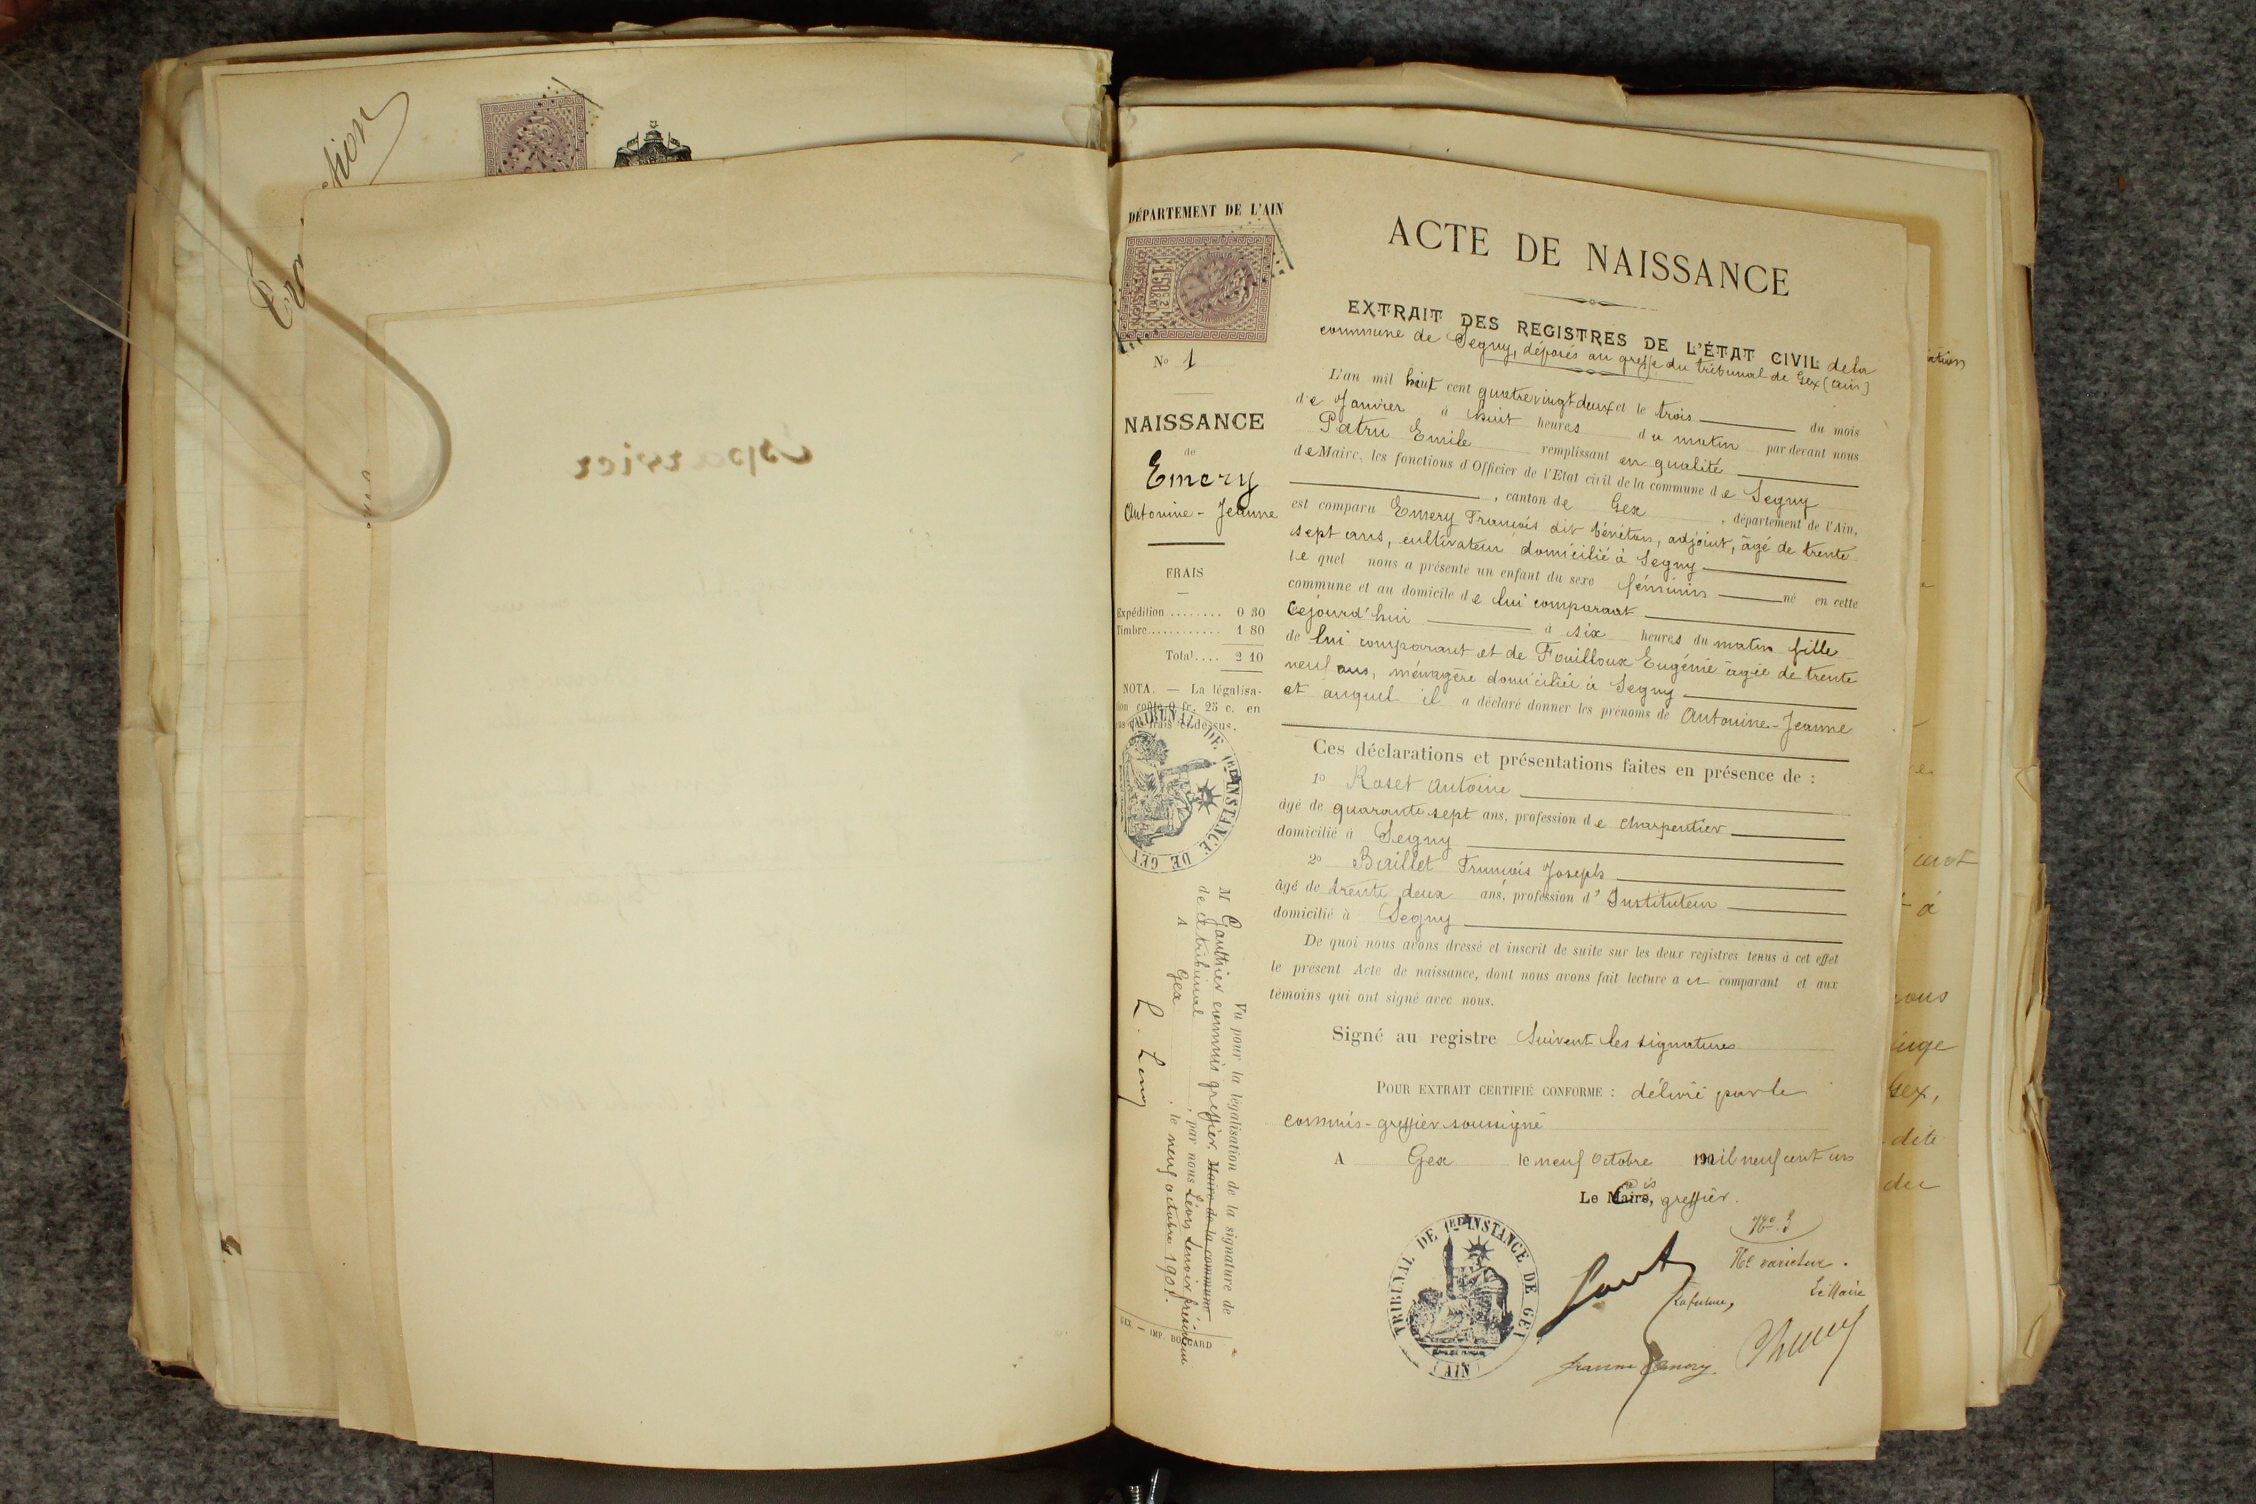 DÉPARTEMENT DE L'AIN
No 1
NAISSANCE
de
Emery
Antonine - Jeanne
FRAIS
Expédition ........ 0 30
Timbre........... 1 80
Total.... 2 10
NOTA. — La légalisa-
tion coûte 0 fr. 25 c. en
TRIBUNAL DE 1ERE INSTANCE DE GEX
Vu pour la légalisation de la signature de
M Gauthier commis greffier Maire de la commune
de ce tribunal, par nous Léon Lenoir président
A Gex, le neuf octobre 1901.
GEX. — IMP.
ACTE DE NAISSANCE
EXTRAIT DES REGISTRES DE L'ÉTAT CIVIL de la
commune de Segny, déposés au greffe du tribunal de Gex (Ain)
L'an mil huit cent quatre vingt deux et le trois du mois
de Janvier à huit heures du matin par devant nous
Patru Emile remplissant en qualité
de Maire, les fonctions d'Officier de l'Etat civil de la commune de Segny
, canton de Gex, département de l'Ain,
est comparu Emery François dit Vénitan, adjoint, âgé de trente
sept ans, cultivateur domicilié à Segny
lequel nous a présenté un enfant du sexe féminin né en cette
commune et au domicile de lui comparant
cejourd'hui à six heures du matin fille
de lui comparant et de Fouilloux Eugénie âgée de trente
neuf ans, ménagère domiciliée à Segny
et auquel il a déclaré donner les prénoms de Antonine-Jeanne
Ces déclarations et présentations faites en présence de :
1o Roset Antoine
âgé de quarante sept ans, profession de charpentier
domicilié à Segny
2o Baillet François Joseph
âgé de trente deux ans, profession d'Instituteur
domicilié à Segny
De quoi nous avons dressé et inscrit de suite sur les deux registres tenus à cet effet
le présent Acte de naissance, dont nous avons fait lecture au comparant et aux
témoins qui ont signé avec nous.
Signé au registre Suivent les signatures
POUR EXTRAIT CERTIFIÉ CONFORME : délivré par le
commis-greffier soussigné
A Gex le neuf Octobre mil neuf cent un
Le Cis greffier.
No 3
Ne varietur.
La future, Le Maire
Jeanne Emery
TRIBUNAL DE 1ERE INSTANCE DE GEX
(AIN)